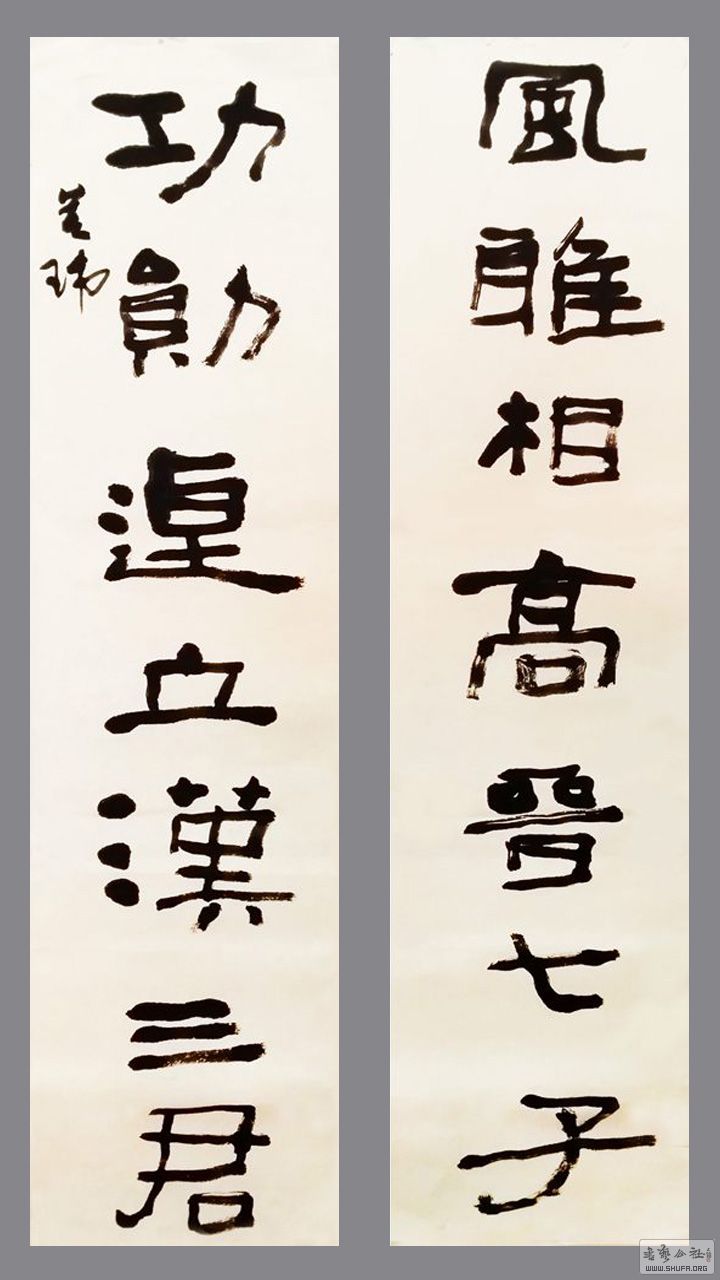 風雅相高晉七子
功勛追立漢三君
WWW.SHUFA.ORG